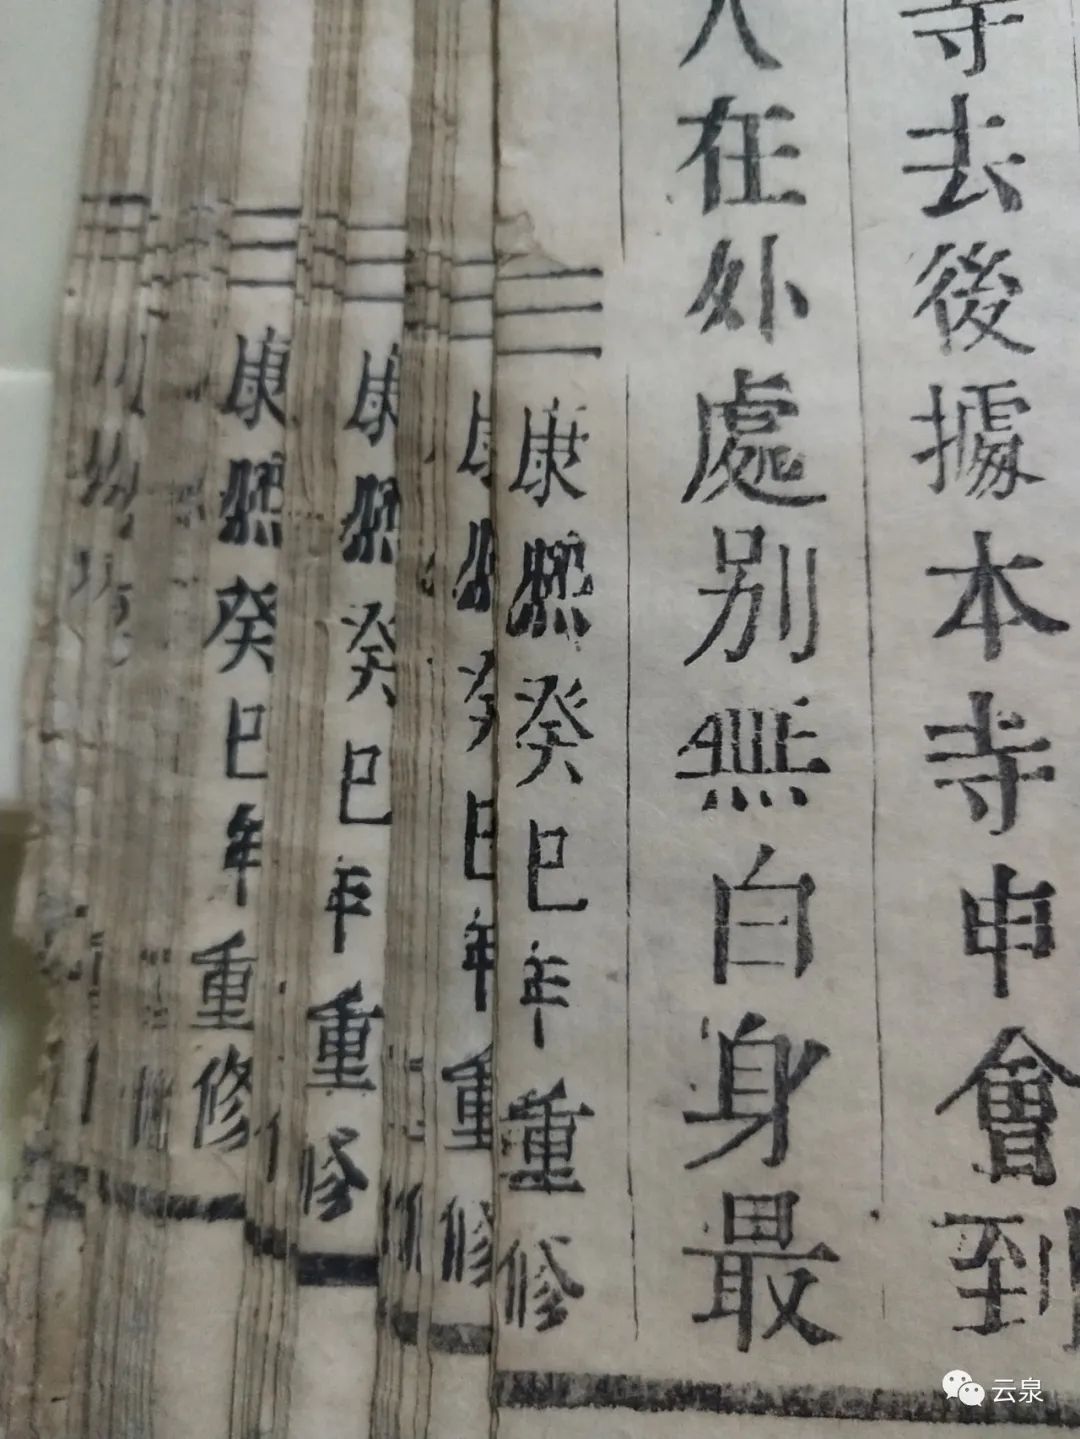 寺去後據本寺申會到
人在外處别無白身最
康熙癸巳年重修
康熙癸巳年重修
康熙癸巳年重修
康熙癸巳年重修
云泉